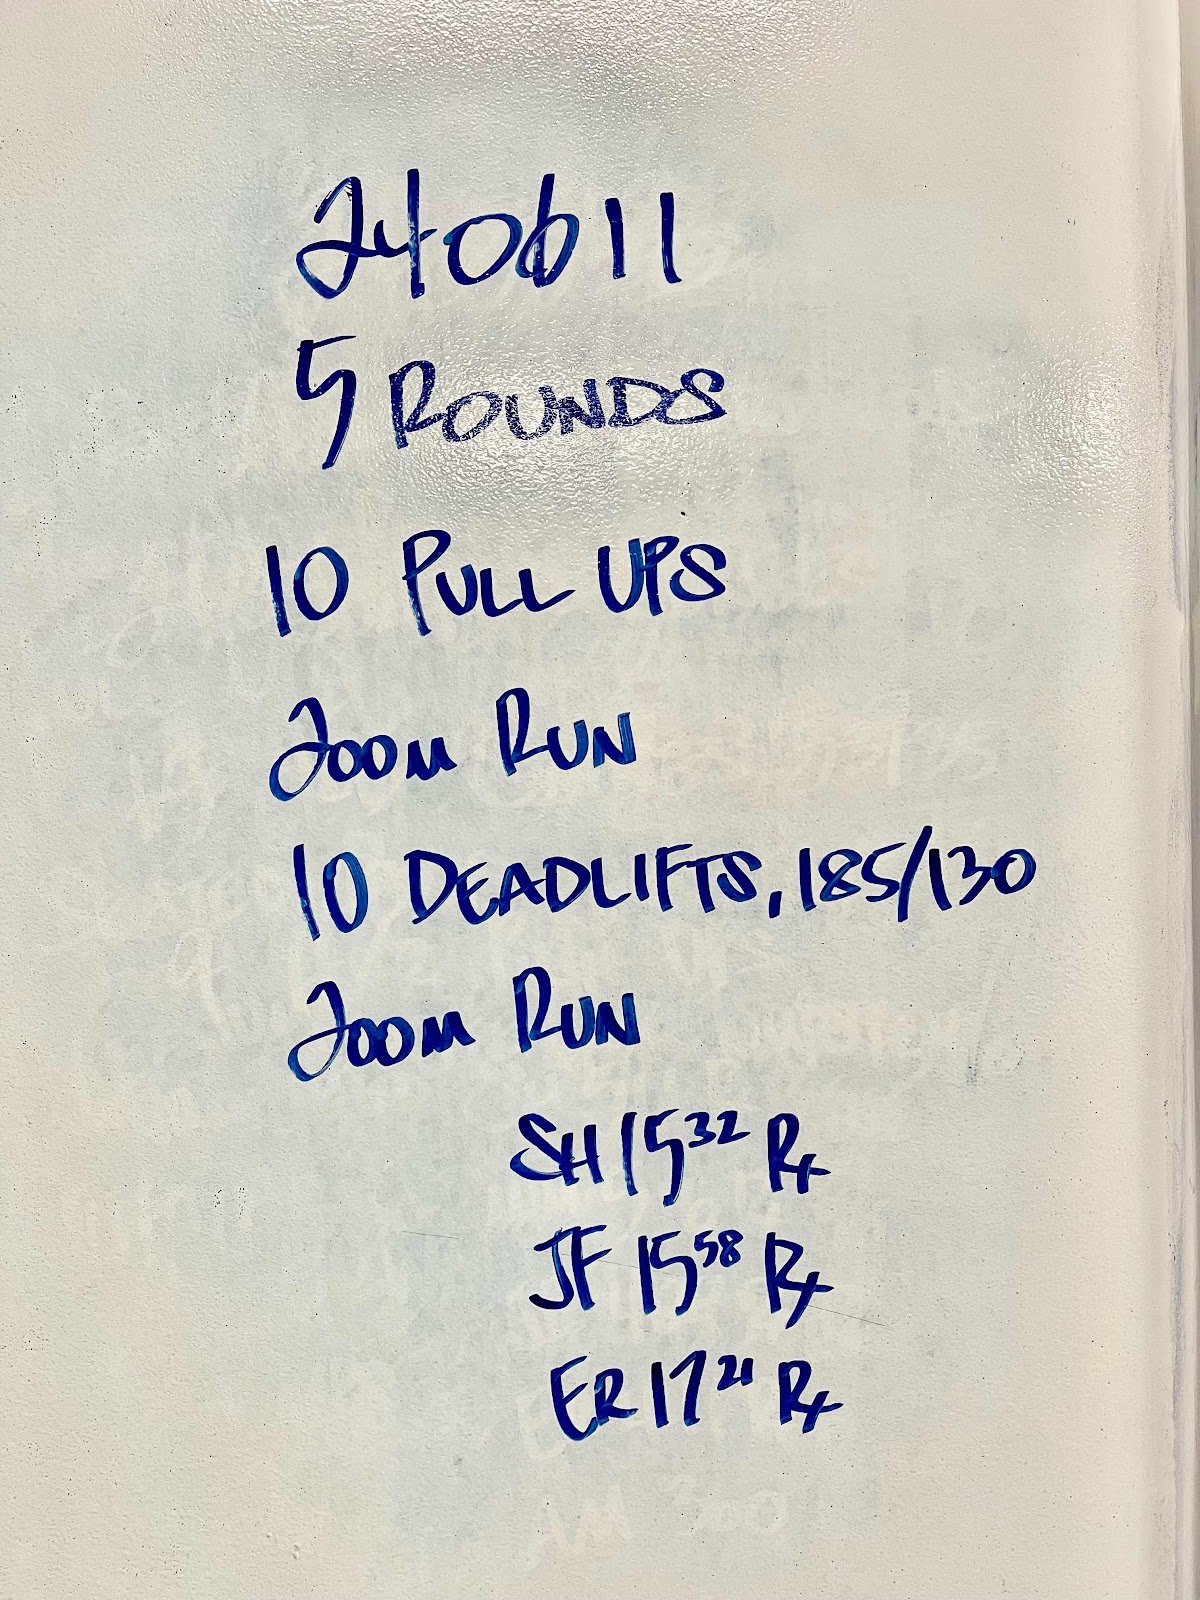 240611
5 ROUNDS
10 PULL UPS
200M RUN
10 DEADLIFTS, 185/130
200M RUN
SH 15 32 Rx
JF 15 58 Rx
ER 17 21 Rx